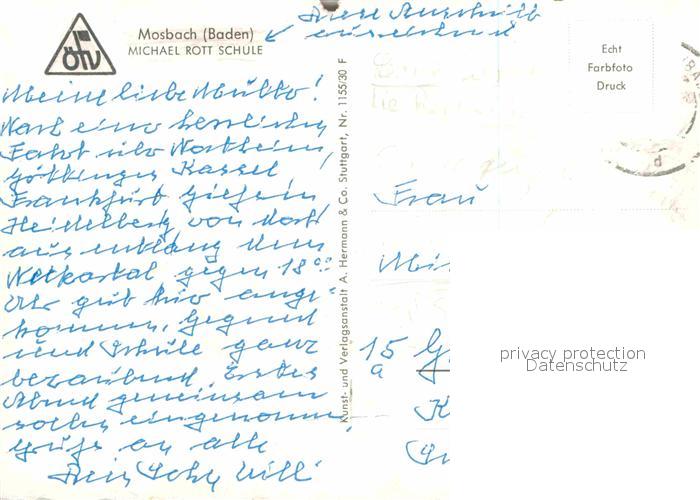 ÖTV
Mosbach (Baden)
MICHAEL ROTT SCHULE
Diese Anschrift
ausreichend
Echt
Farbfoto
Druck
Meine liebe Mutti!
Nach einer herrlichen
Fahrt über Northeim,
Göttingen, Kassel,
Frankfurt, Gießen,
Heidelberg, von dort
aus entlang dem
Neckartal gegen 18⁰⁰
Uhr gut hier ange-
kommen. Gegend
und Schule ganz
bezaubernd. Erstes
Abend gemeinsam
eingenommen,
Grüße an alle
Dein Sohn Willi
Kunst- und Verlagsanstalt A. Hermann & Co. Stuttgart, Nr. 1155/30 F
Frau
15
a
privacy protection
Datenschutz